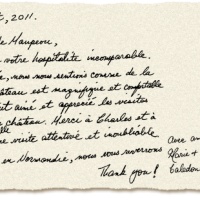 , 2011.
de Maupeou,
votre hospitalité incomparable.
, nous nous sentions comme de la
château est magnifique et confortable
aimé et apprecié les visites
château. Merci à Charles et à
une visite attentivé et inoubliable
en Normandie, nous vous reverrons
Thank you!
Avec am
Marie +
Caledon